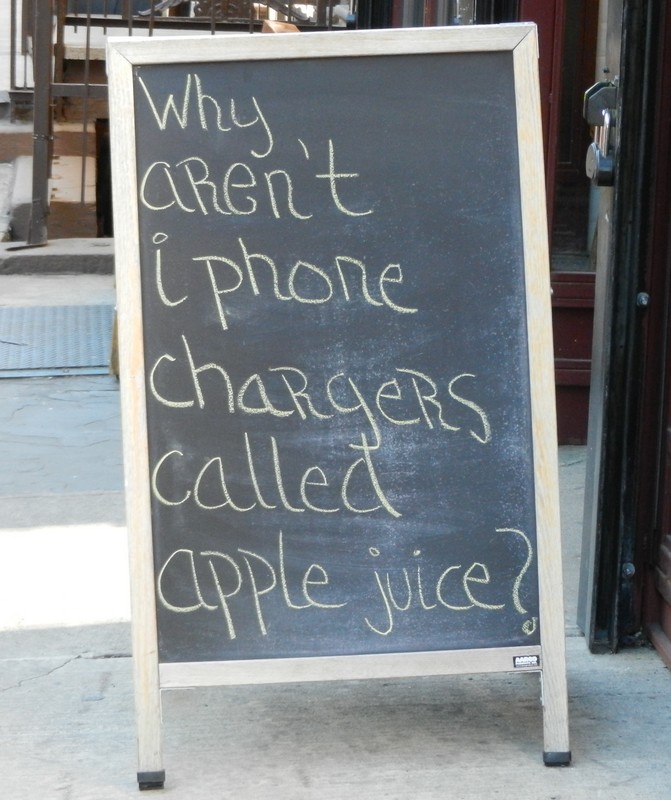 Why
aren't
iphone
chargers
called
apple juice?
AARCO